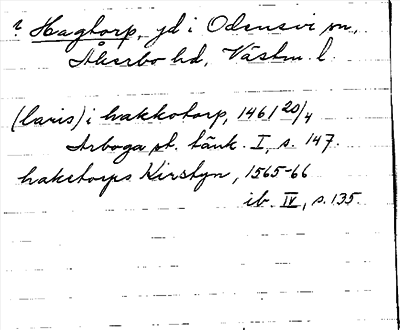 i Hagtorp, jd i Odensvi sn,
Åkerbo hd, Västm. l.
(laris) i hakkotorp, 1461 20/4
Arboga st. tänk. I, s. 147.
hakstorps Kirstyn, 1565-66
ib. IV, s. 135.